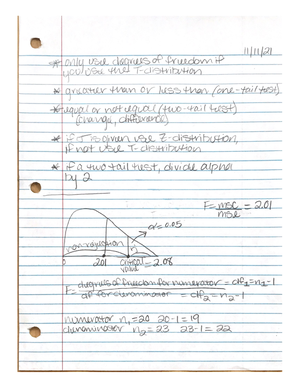 11/11/21
* only use degrees of freedom if
you use the T-distribution
* greater than or less than (one-tail test)
* equal or not equal (two-tail test)
(change, difference)
* if σ is given use Z-distribution,
if not use T-distribution
* if a two tail test, divide alpha
by 2
F = msc = 2.01
mse
α=0.05
non-rejection
0 2.01 critical = 2.08
value
F = degrees of freedom for numerator = df₁ = n₁-1
df for denominator = df₂ = n₂-1
numerator n₁=20 20-1=19
denominator n₂=23 23-1=22